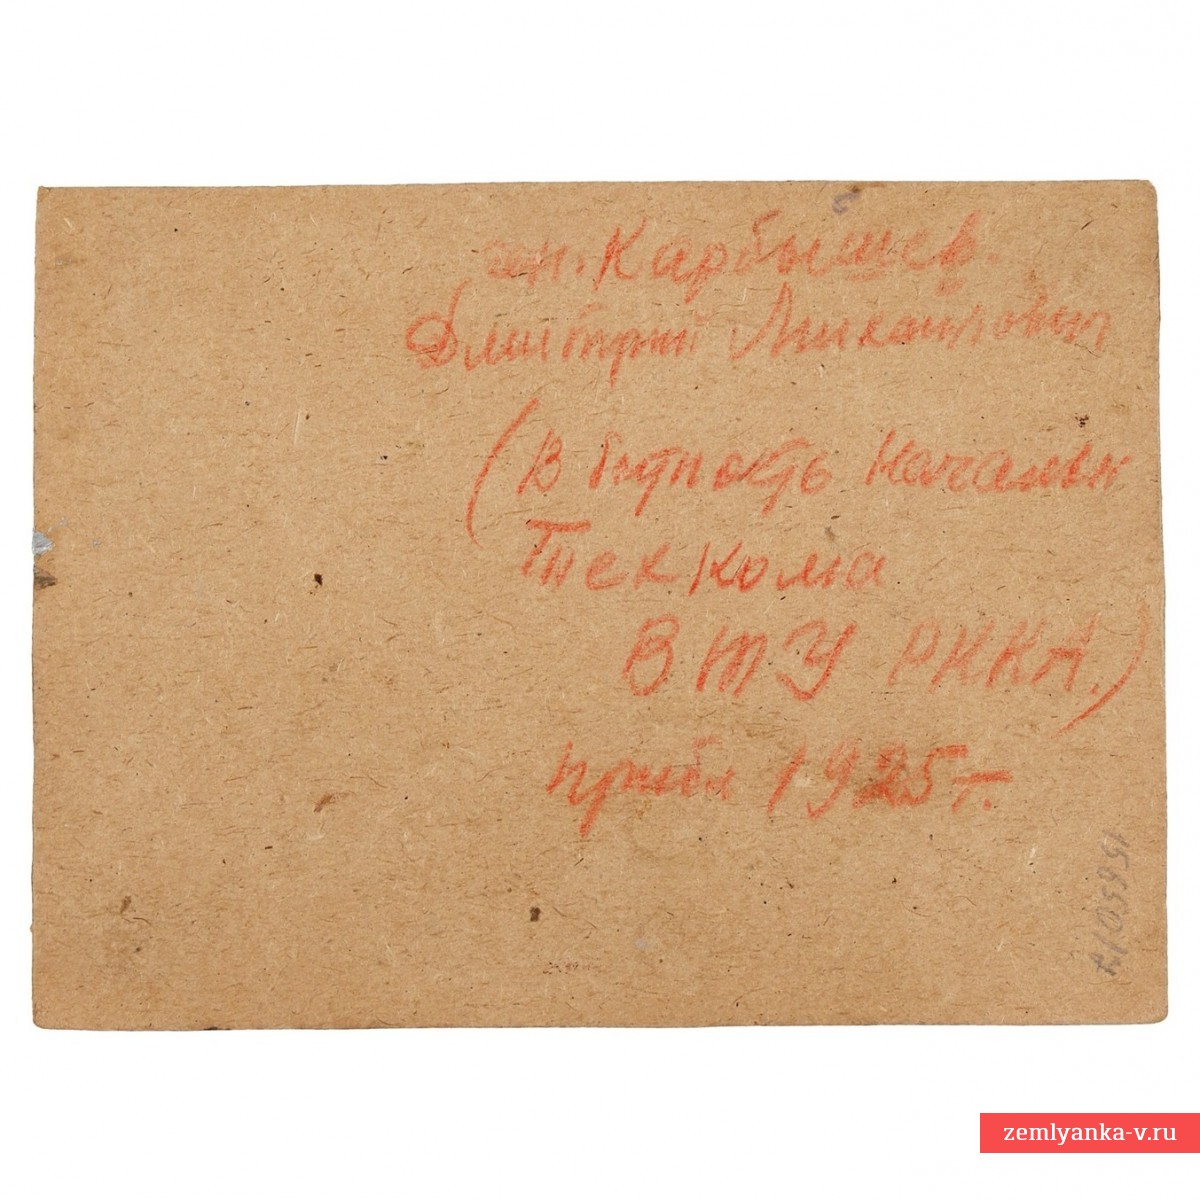 ген. Карбышев.
Дмитрий Михайлович
(В бытность начальн
Техкома
ВТУ РККА.)
прибл 1925 г.
zemlyanka-v.ru